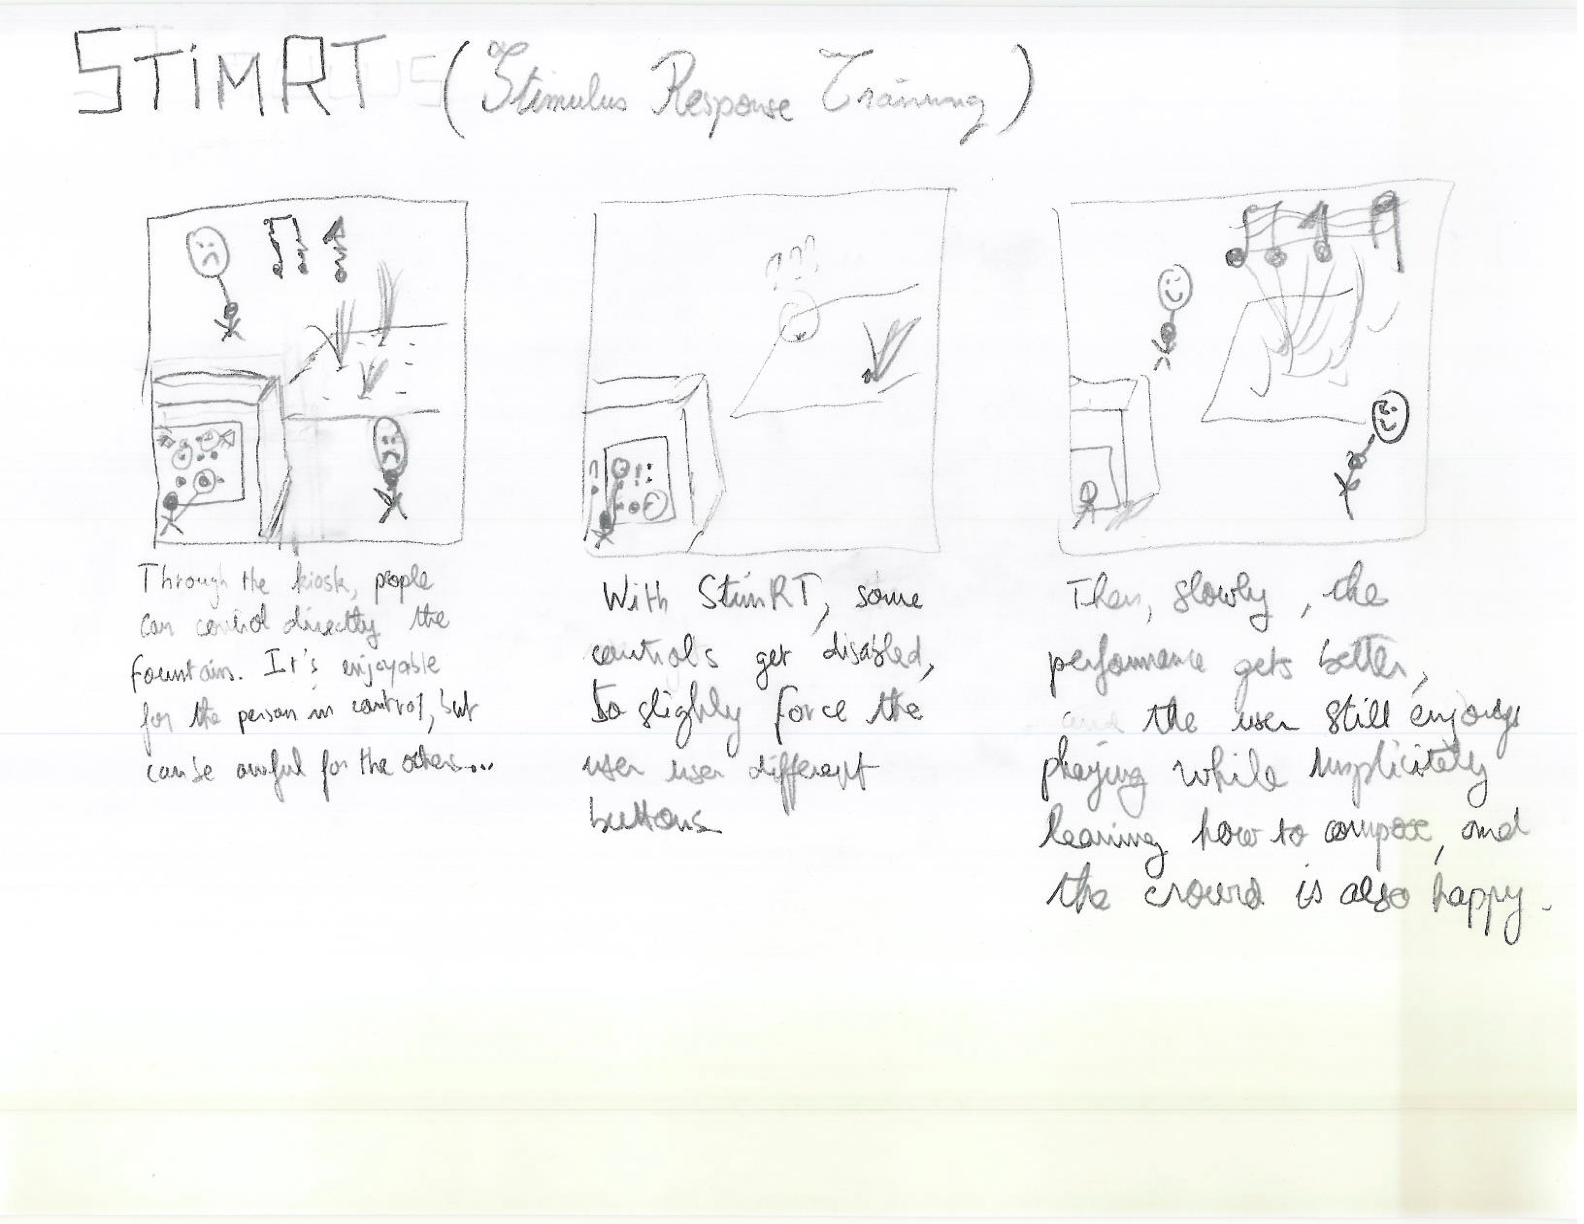 STiMRT (Stimulus Response Training)
Through the kiosk, people
can control directly the
fountain. It's enjoyable
for the person in control, but
can be awful for the others...
???
With StimRT, some
controls get disabled,
to slighly force the
user user different
buttons
Then, slowly, the
performance gets better,
and the user still enjoys
playing while implicitely
learning how to compose, and
the crowd is also happy.